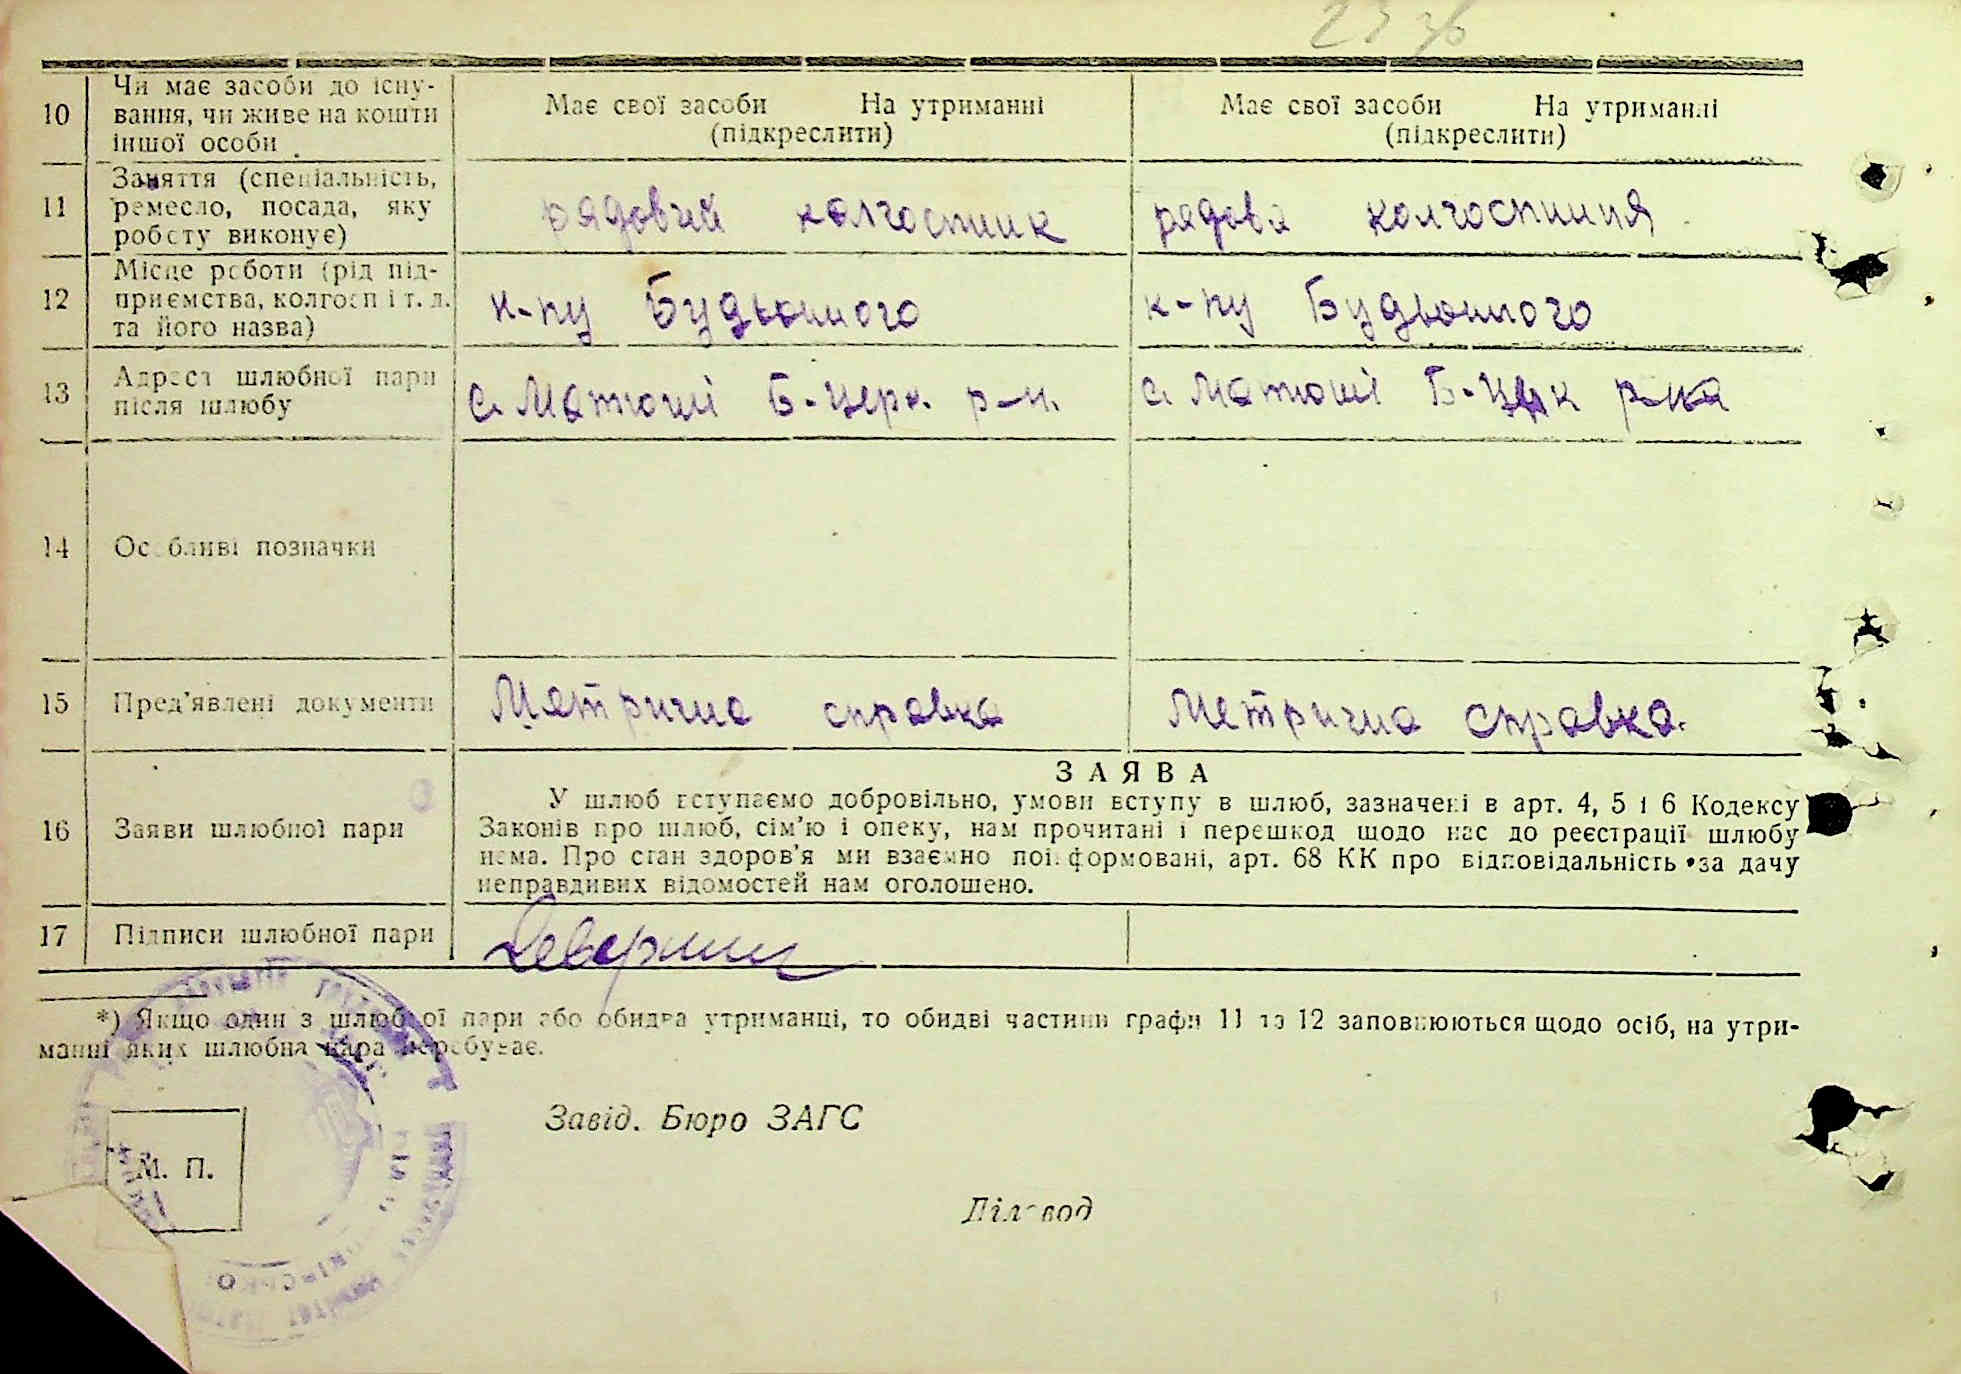 10 Чи має засоби до існу-
вання, чи живе на кошти
іншої особи
Має свої засоби На утриманні
(підкреслити)
Має свої засоби На утриманні
(підкреслити)
11 Заняття (спеціальність,
ремесло, посада, яку
роботу виконує)
рядовий колгоспник
рядова колгоспниця
12 Місце роботи (рід під-
приємства, колгосп і т. д.
та його назва)
к-пу Будьонного
к-пу Будьонного
13 Адреса шлюбної пари
після шлюбу
с. Матюші Б-Церк. р-н.
с. Матюші р-на
14 Особливі позначки
15 Пред'явлені документи
Метрична справка
Метрична справка.
16 Заяви шлюбної пари
ЗАЯВА
У шлюб вступаємо добровільно, умови вступу в шлюб, зазначені в арт. 4, 5 і 6 Кодексу
Законів про шлюб, сім'ю і опеку, нам прочитані і перешкод щодо нас до реєстрації шлюбу
нема. Про стан здоров'я ми взаємно поінформовані, арт. 68 КК про відповідальність за дачу
неправдивих відомостей нам оголошено.
17 Підписи шлюбної пари
*) Якщо один з шлюбної пари або обидва утриманці, то обидві частини графи 11 та 12 заповнюються щодо осіб, на утри-
манні яких шлюбна пара перебуває.
Завід. Бюро ЗАГС
М. П.
Діловод